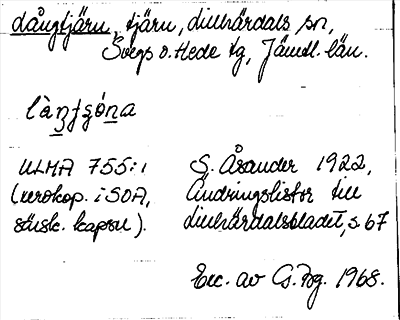 Långtjärn, tjärn, Lillhärdals sn,
Svegs o. Hede tg, Jämtl. län.
ULMA 755:1
(xerokop. i SOA,
särsk. kapsu).
S. Åsander 1922,
Ändringslistor till
Lillhärdalsbladet, s. 67
Exc. av G. Bg. 1968.